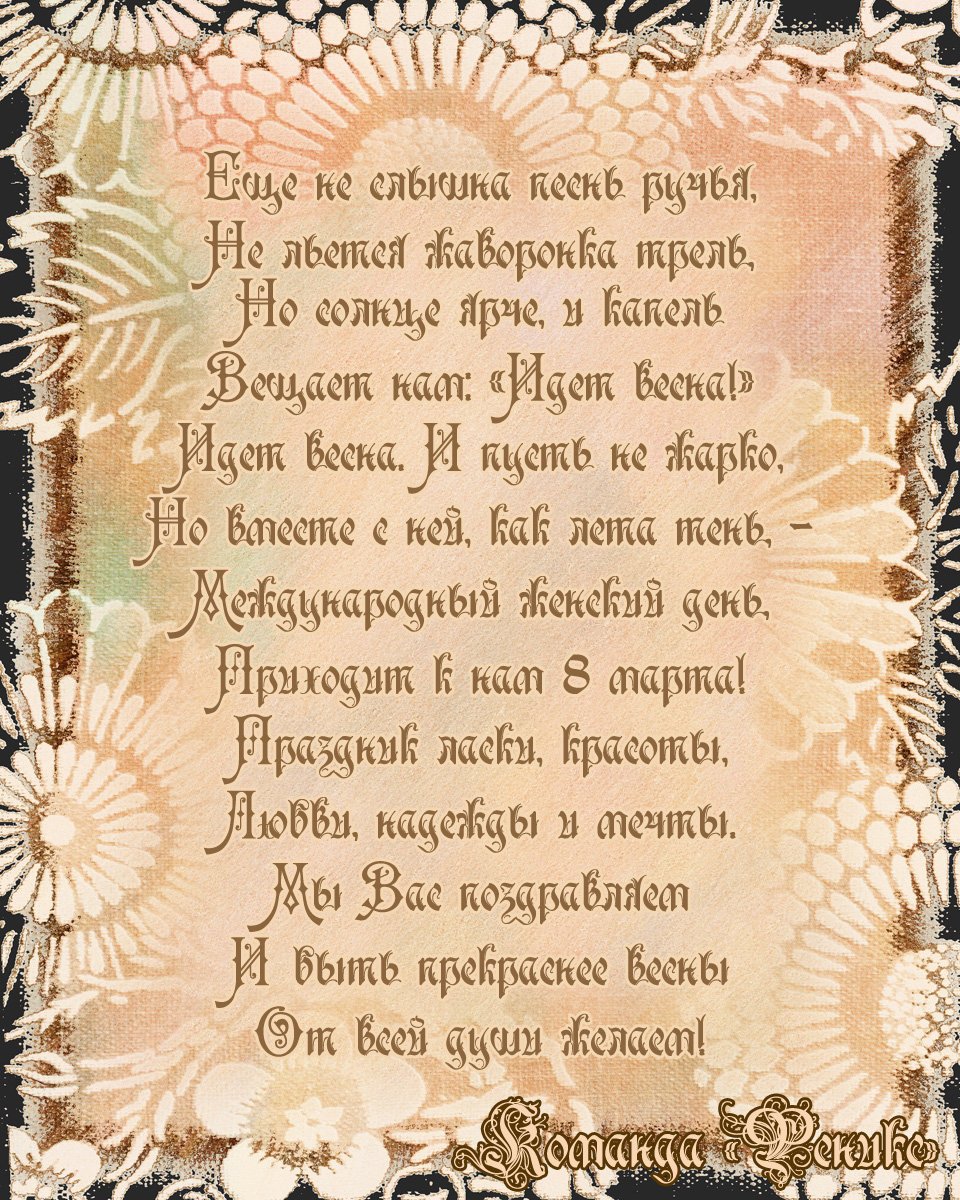 Еще не слышна песнь ручья,
Не льется жаворонка трель,
Но солнце ярче, и капель
Вещает нам: «Идет весна!»
Идет весна. И пусть не жарко,
Но вместе с ней, как лета тень, –
Международный женский день,
Приходит к нам 8 марта!
Праздник ласки, красоты,
Любви, надежды и мечты.
Мы Вас поздравляем
И быть прекраснее весны
От всей души желаем!
Команда «Феникс»